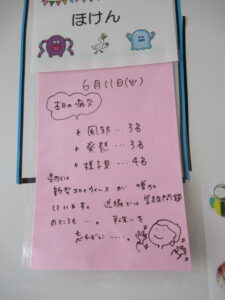 ほけん
6月11日(火)
本日の病欠
風邪…3名
発熱…3名
様子見…4名
新型コロナウィルス が 増え
ています。近隣では 学級閉鎖
のところも…。手洗いを
忘れずに……。